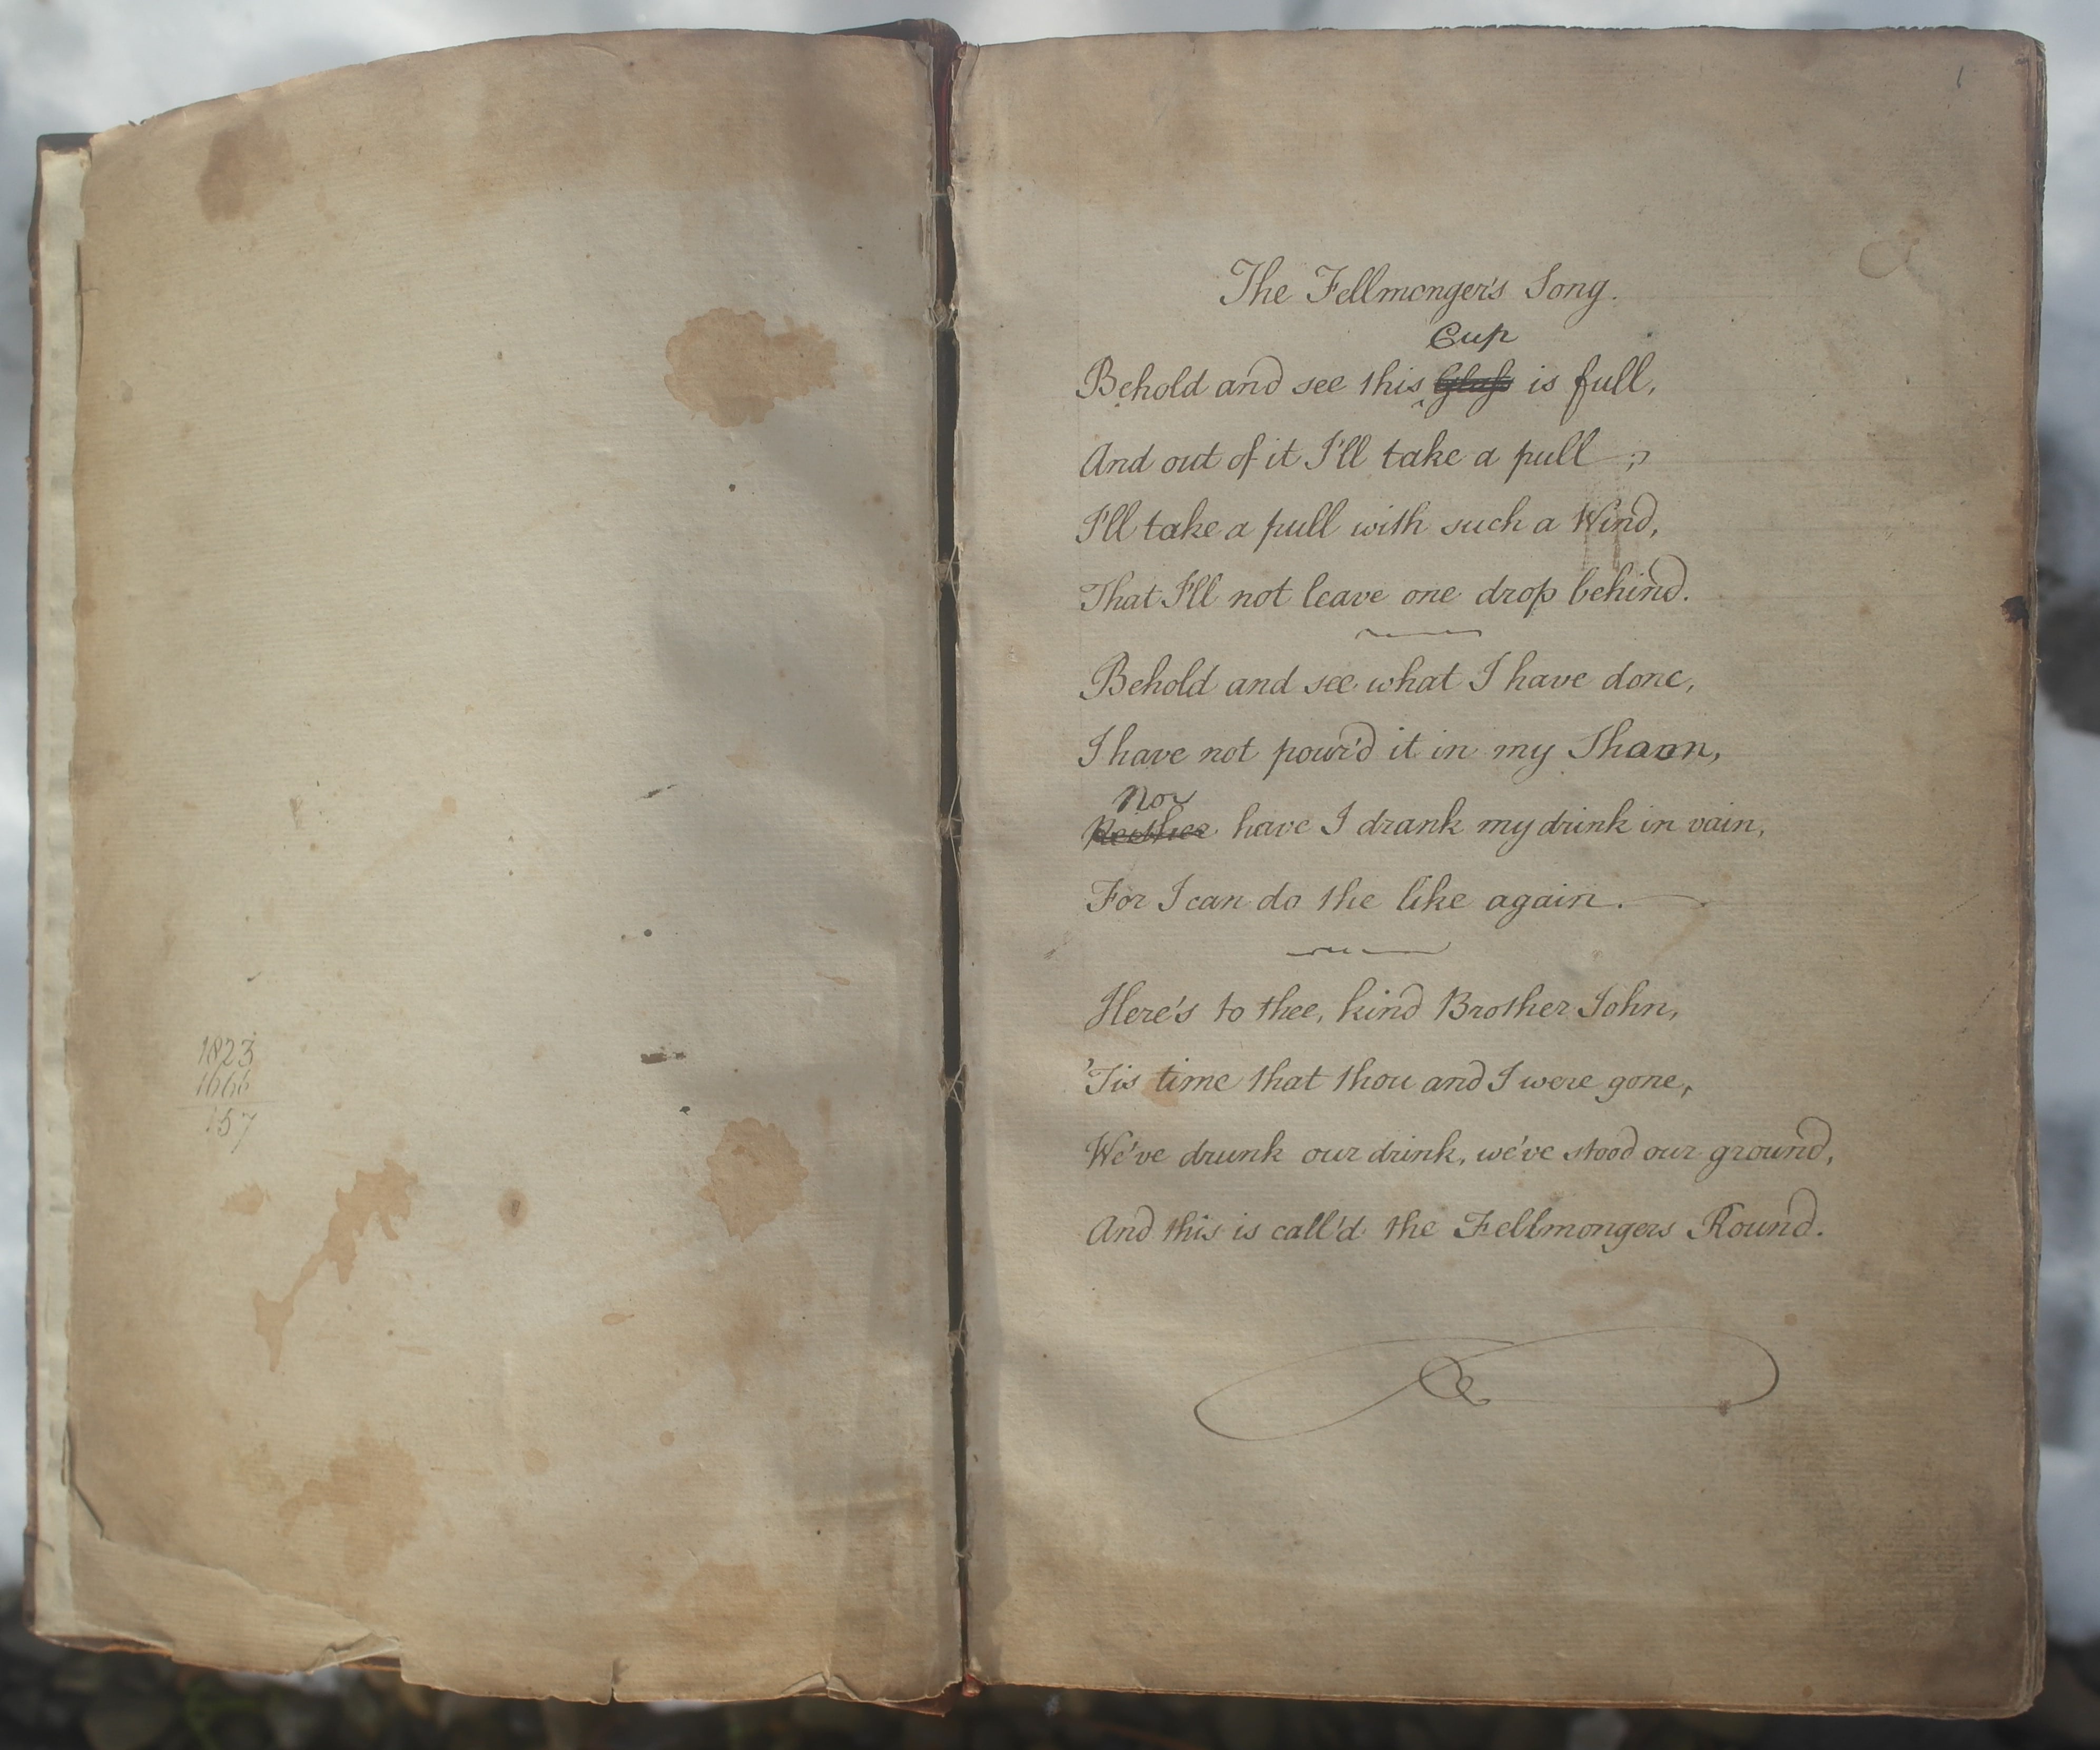 1823
1666
157
1
The Fellmonger's Song.
Cup
Behold and see this Glaſs is full,
And out of it I'll take a pull ;
I'll take a pull with such a Wind,
That I'll not leave one drop behind.
Behold and see what I have done,
I have not pour'd it in my
Nor
Neither have I drank my drink in vain,
For I can do the like again.
Here's to thee, kind Brother John,
'Tis time that thou and I were gone,
We've drunk our drink, we've stood our ground,
And this is call'd the Fellmongers Round.